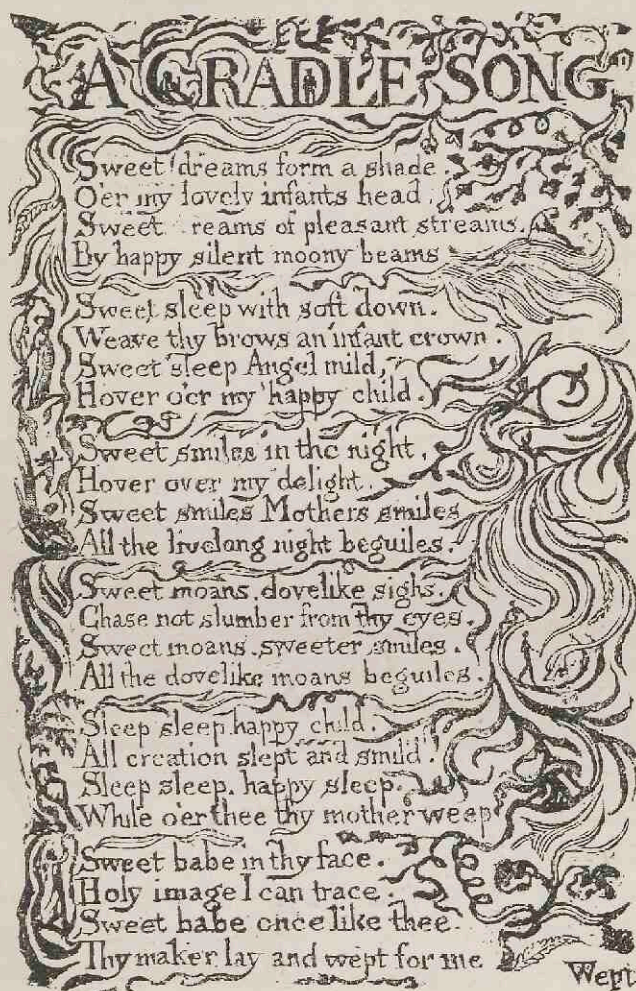 A CRADLE SONG
Sweet dreams form a shade.
O'er my lovely infants head.
Sweet reams of pleasant streams.
By happy silent moony beams
Sweet sleep with soft down.
Weave thy brows an infant crown.
Sweet sleep Angel mild,
Hover o'er my happy child.
Sweet smiles in the night,
Hover over my delight.
Sweet smiles Mothers smiles
All the livelong night beguiles.
Sweet moans, dovelike sighs.
Chase not slumber from thy eyes.
Sweet moans, sweeter smiles.
All the dovelike moans beguiles.
Sleep sleep happy child.
All creation slept and smil'd.
Sleep sleep, happy sleep.
While o'er thee thy mother weep
Sweet babe in thy face.
Holy image I can trace.
Sweet babe once like thee.
Thy maker lay and wept for me
Wept